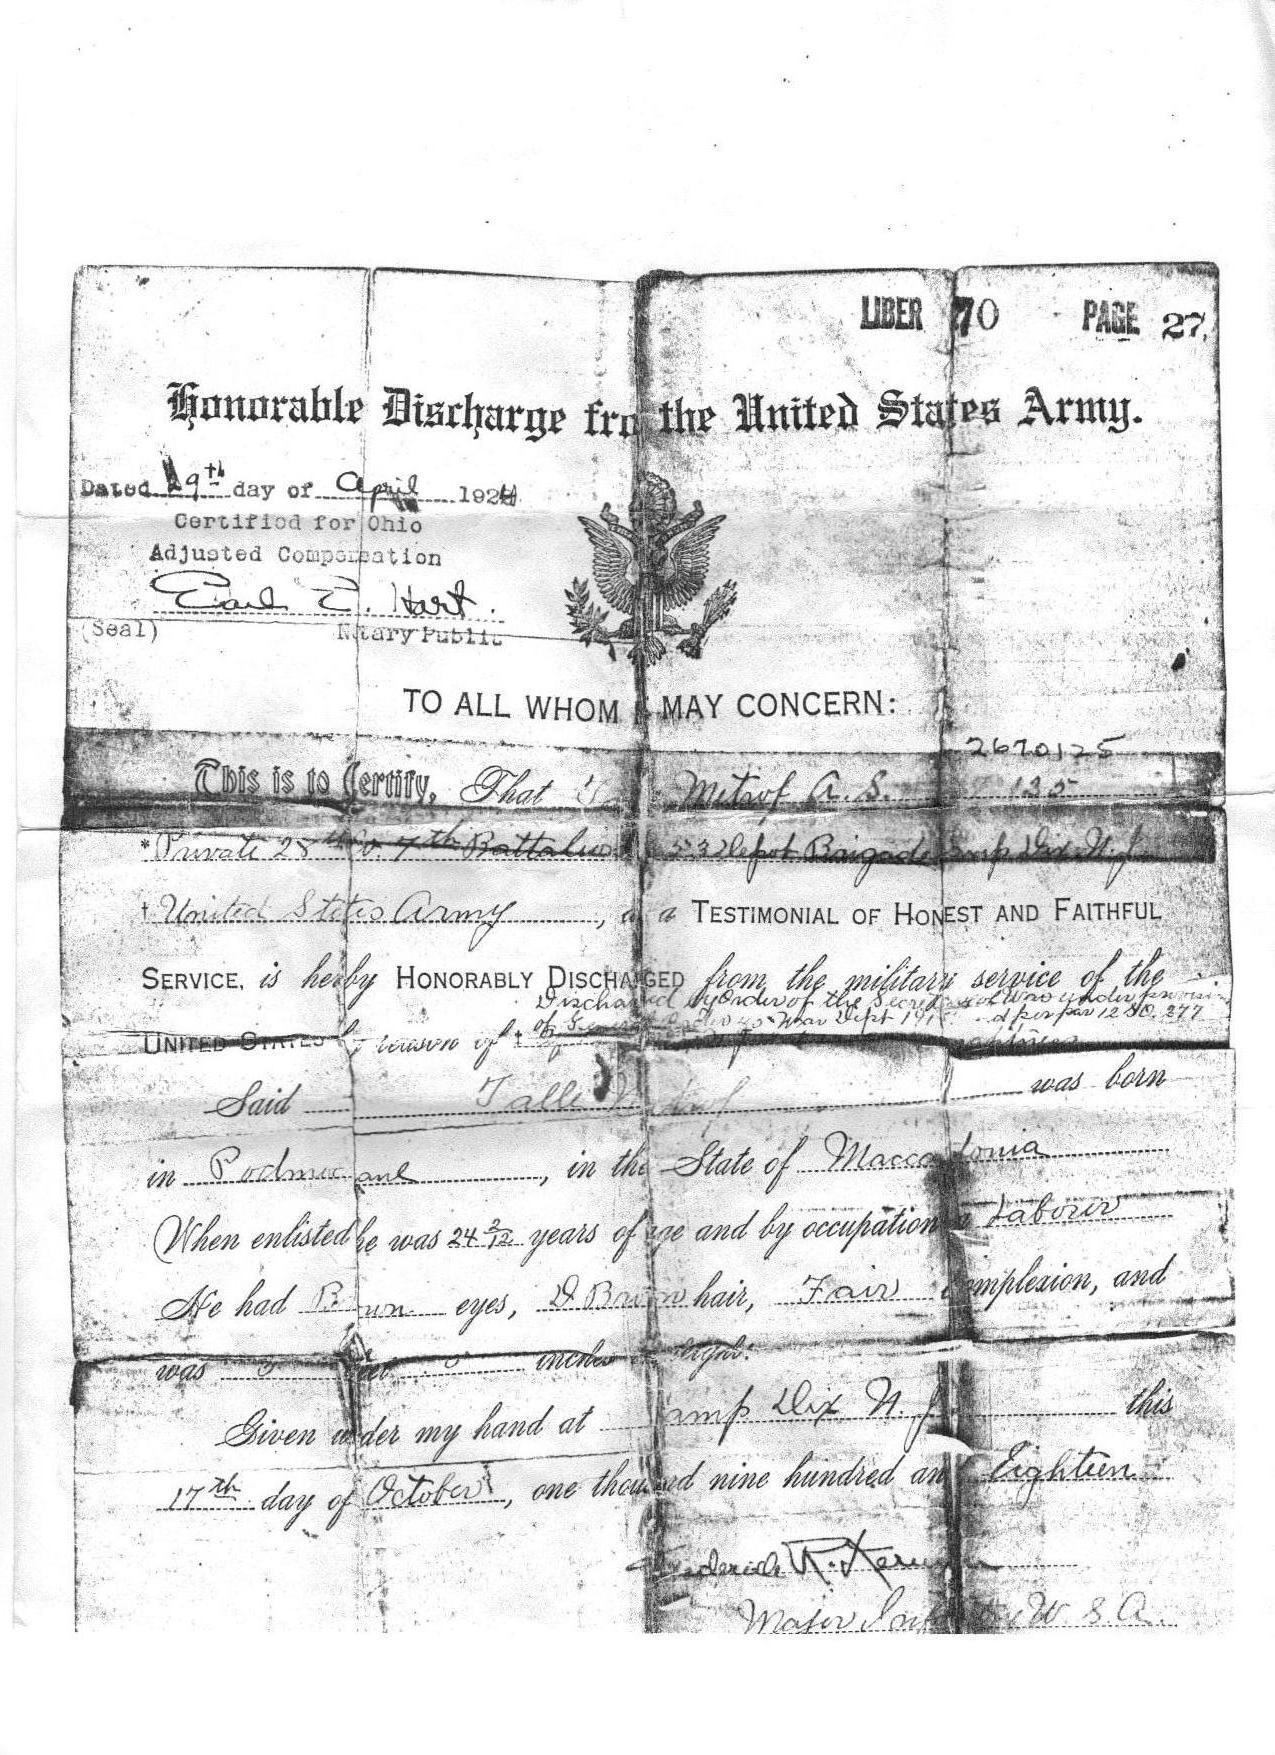 LIBER 70 PAGE 27
Honorable Discharge fro the United States Army.
Dated 19th day of April 192
Certified for Ohio
Adjusted Compensation
Earl E. Hart.
(Seal) Notary Public
TO ALL WHOM MAY CONCERN:
2670125
This is to Certify, That Metrof A.S. 135
*Private 28th Co. 7th Battalion 153 Depot Brigade Camp Dix N.J.
†United States Army, a a TESTIMONIAL OF HONEST AND FAITHFUL
SERVICE, is hereby HONORABLY DISCHARGED from the military service of the
Discharged by Order of the Secretary of War under provisi
of War Dept 191 d per par 12 SO. 277
UNITED STATES by reason of †
Said was born
in , in the State of Maccadonia
When enlisted he was 24 2/12 years of age and by occupation a Laborer
He had Brown eyes, D Brown hair, Fair complexion, and
was inches
Given under my hand at Camp Dix N.J. this
17th day of October, one thousand nine hundred and Eighteen
Frederick R.
Major Infantry U.S.A.